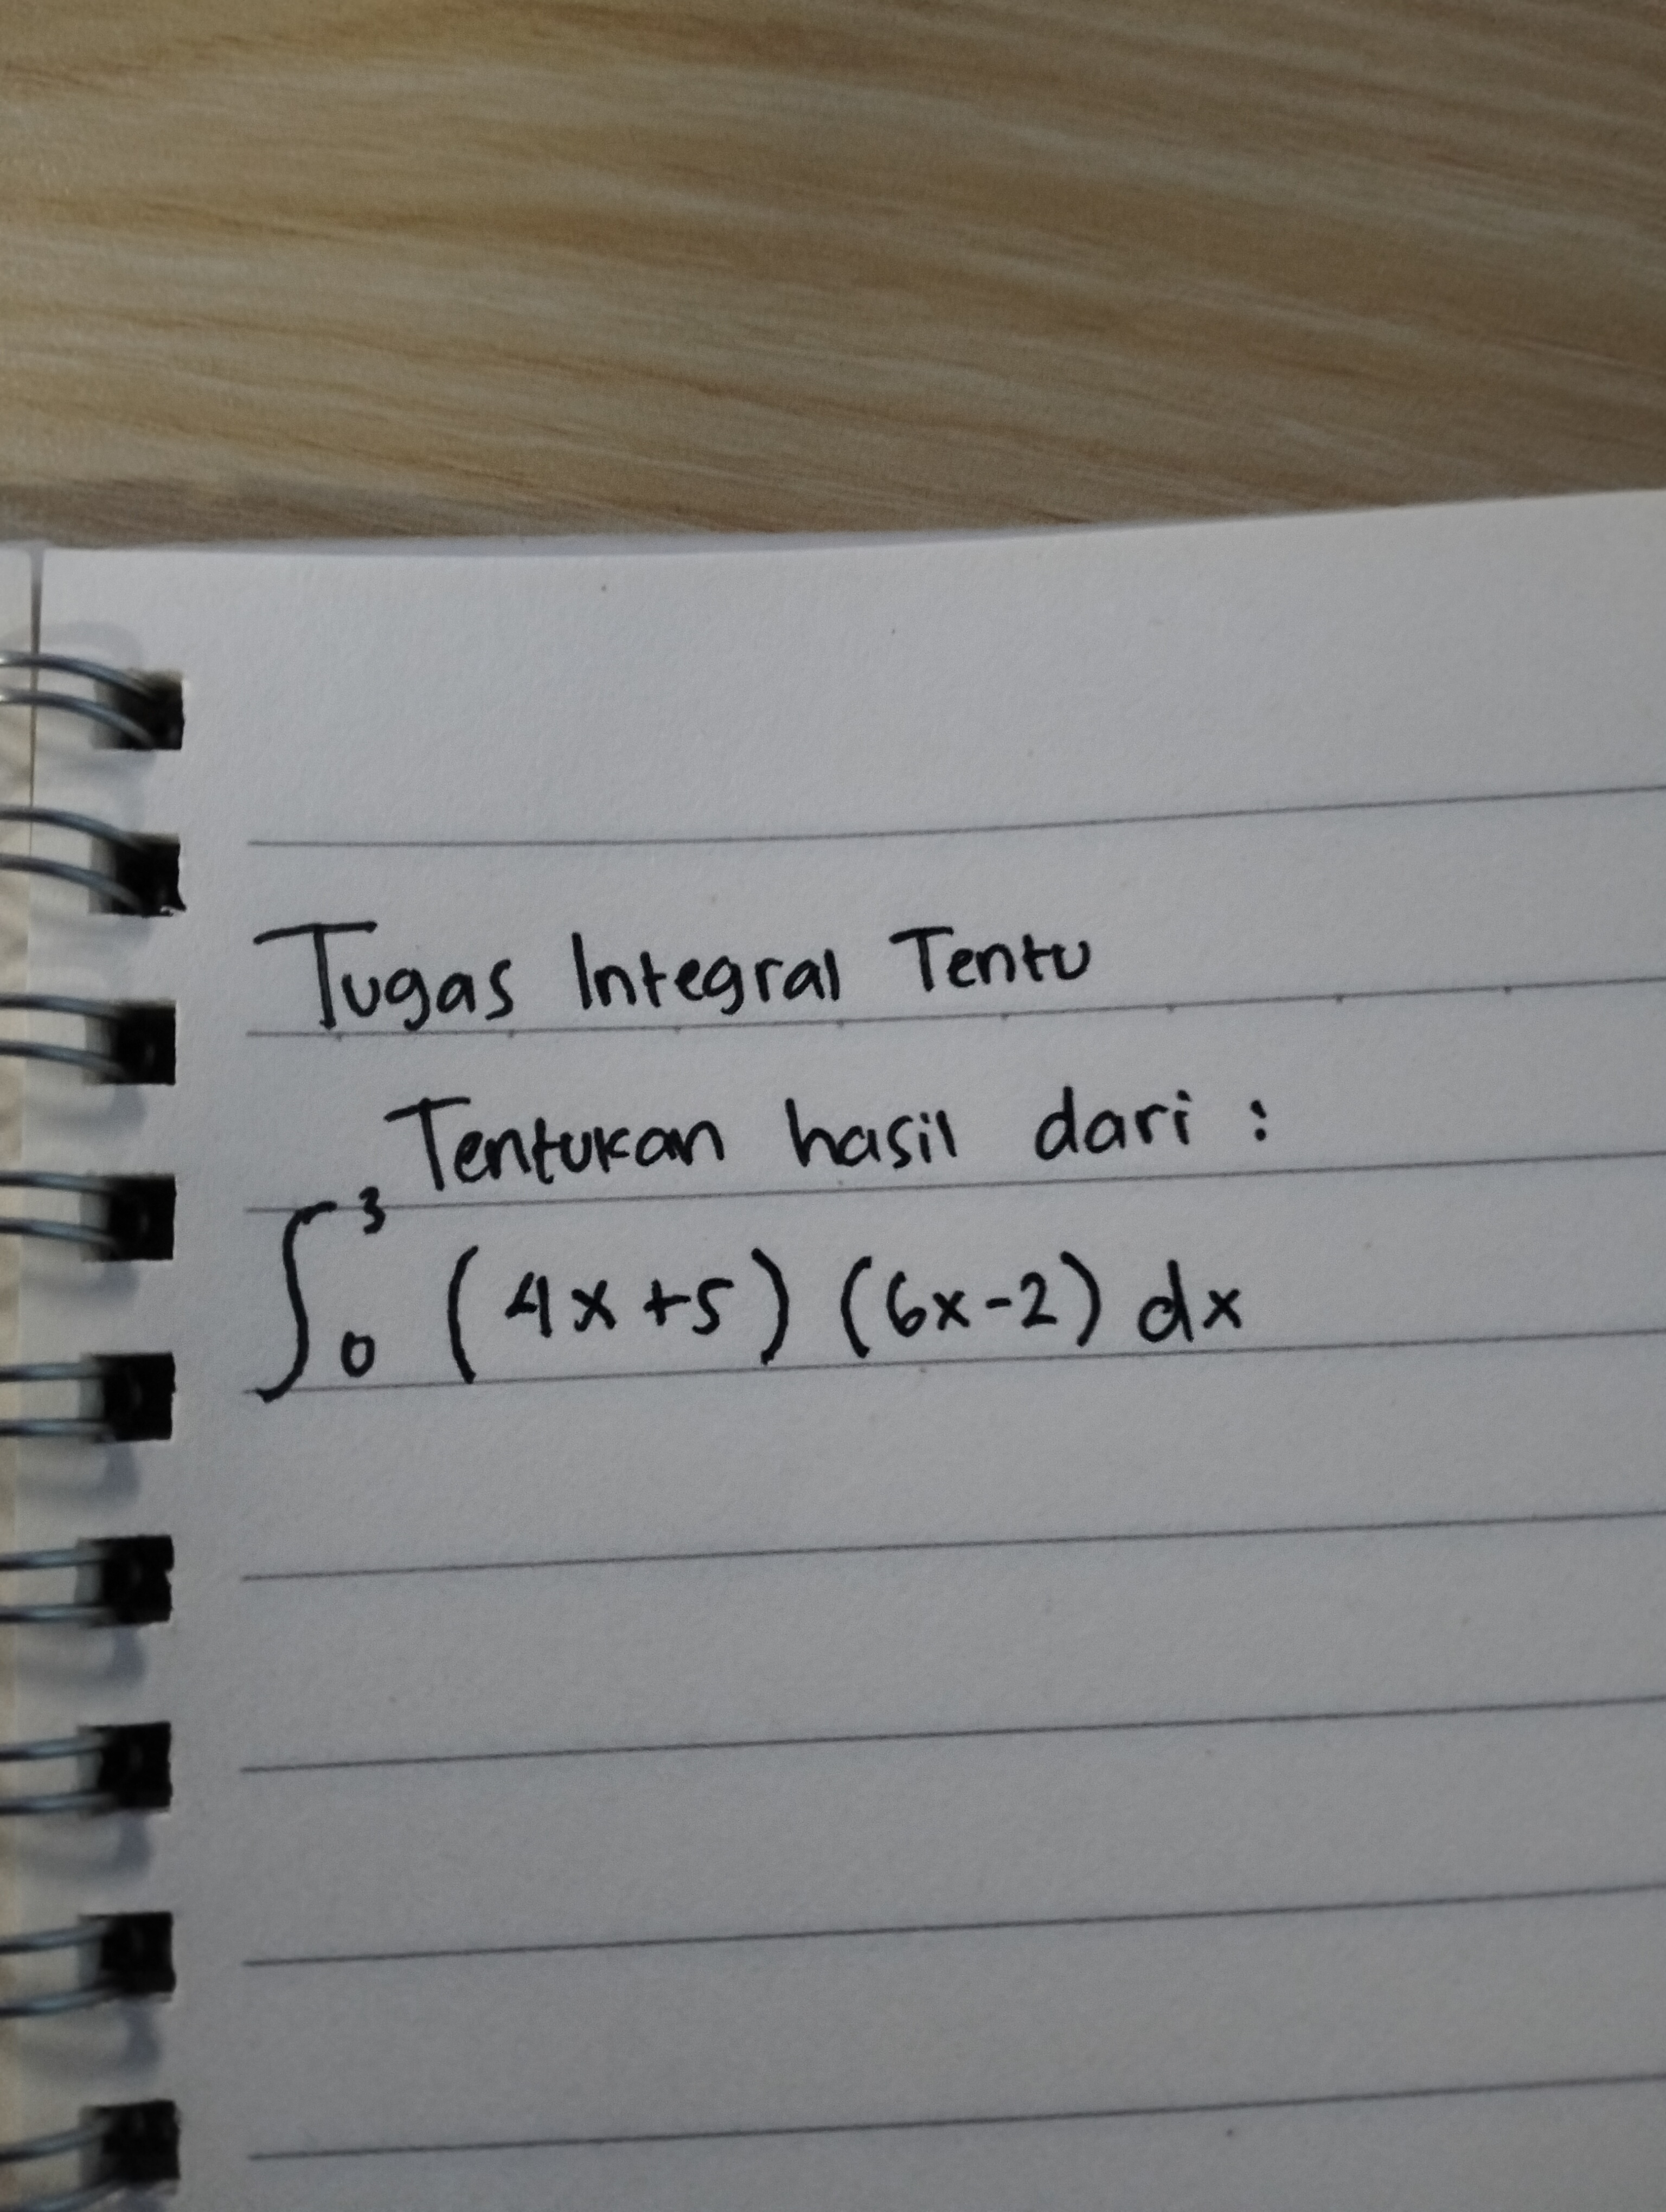 Tugas Integral Tentu
Tentukan hasil dari :
∫₀³ (4x+5) (6x-2) dx